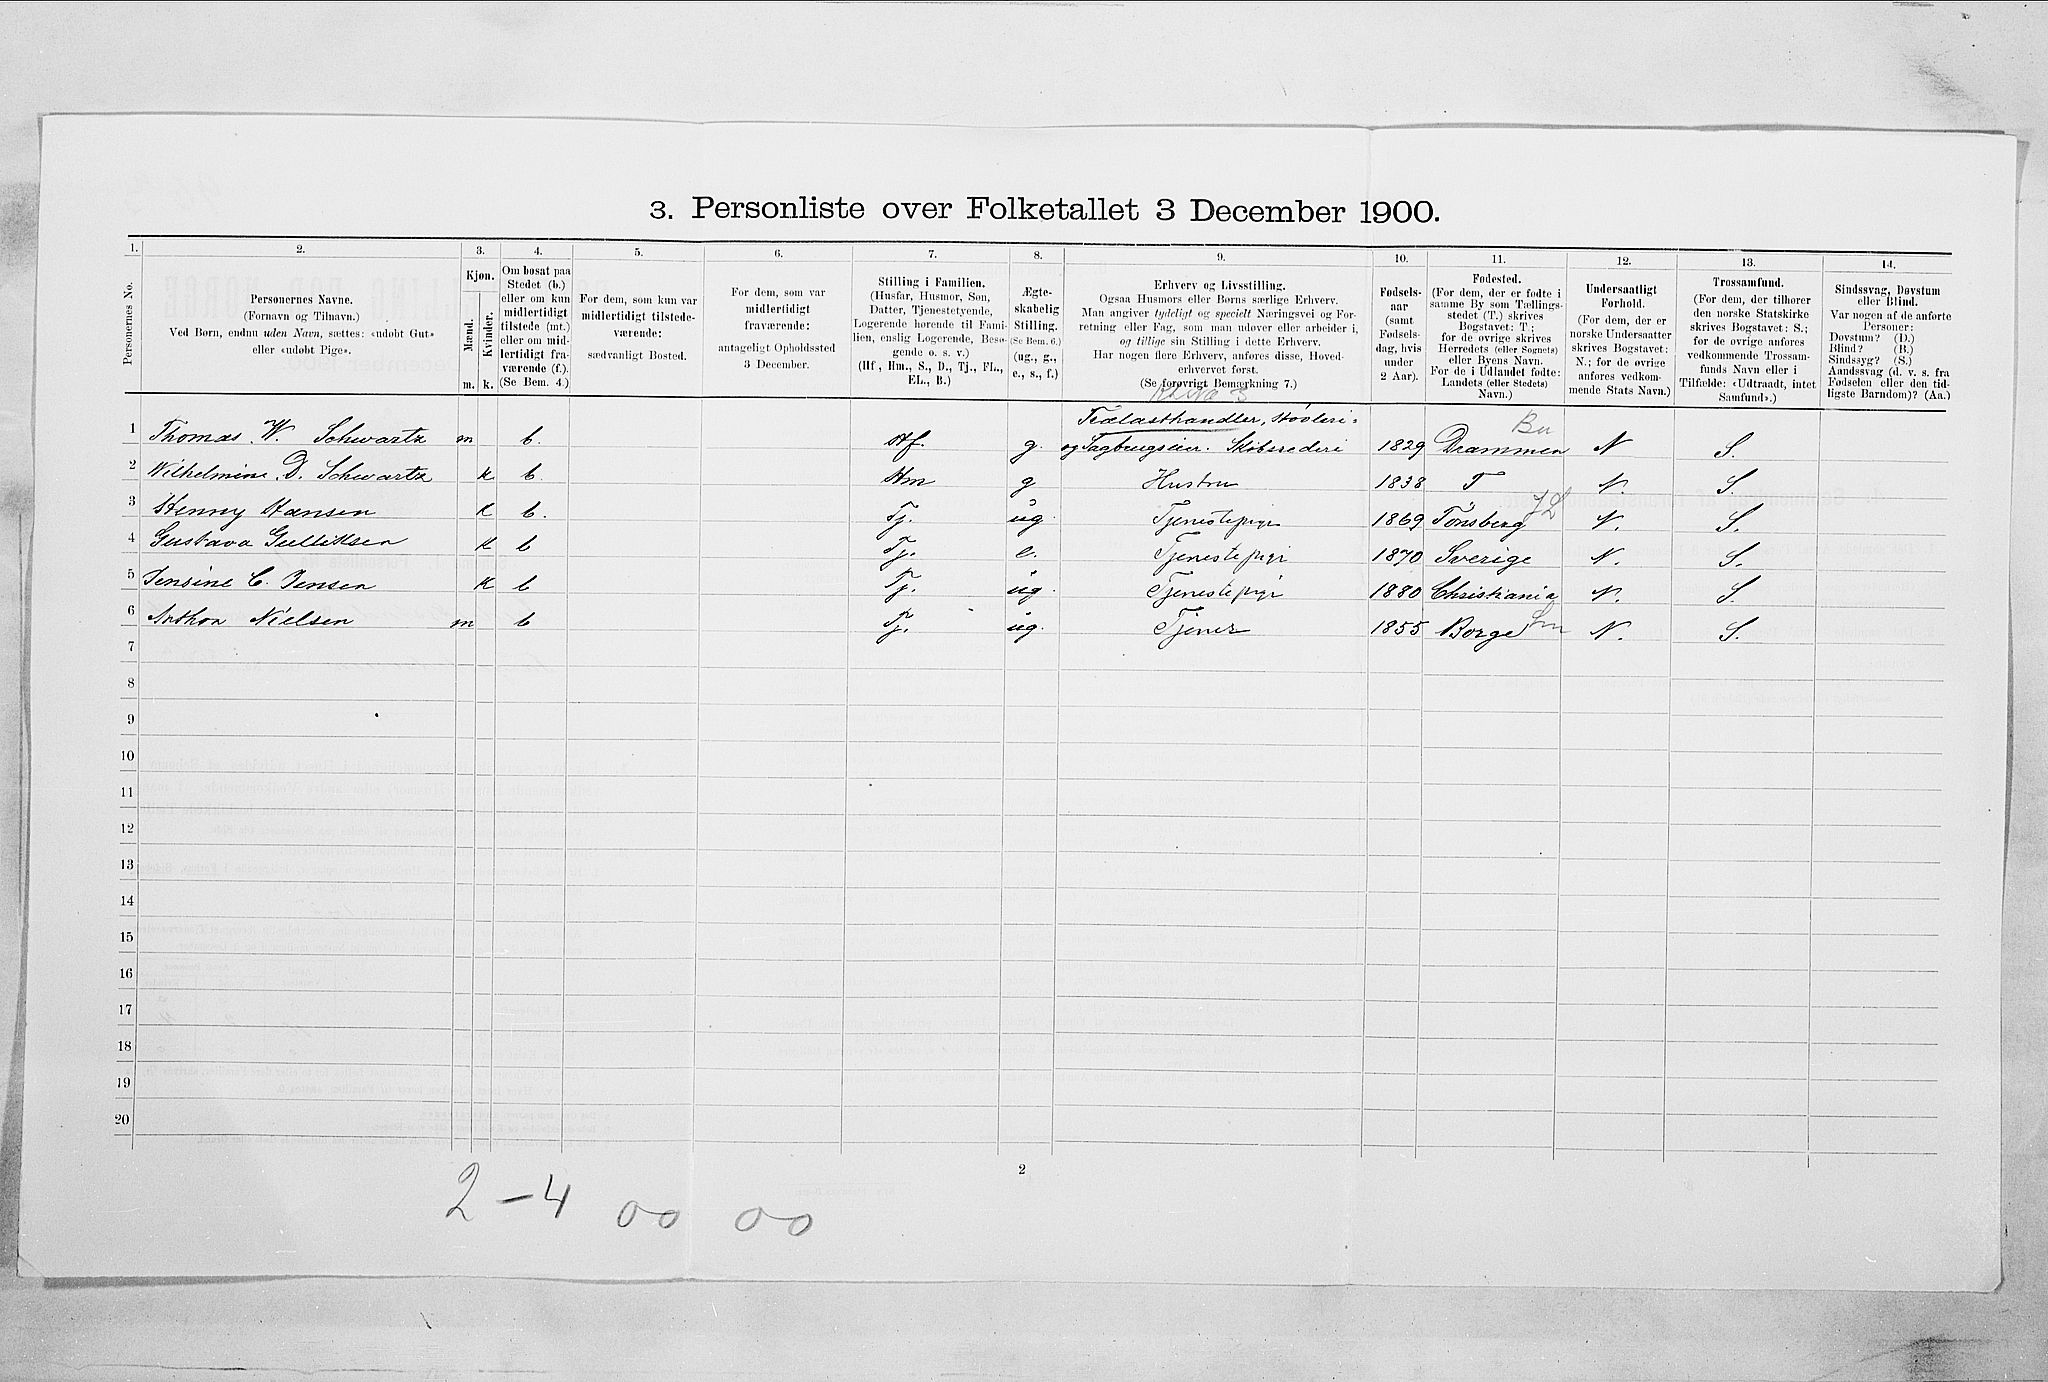 3. Personliste over Folketallet 3 December 1900.
1. 2. 3. 4. 5. 6. 7. 8. 9. 10. 11. 12. 13. 14.
Personernes No.
Personernes Navne.
(Fornavn og Tilnavn.)
Ved Børn, endnu uden Navn, sættes: «udøbt Gut»
eller «udøbt Pige».
Kjøn.
Mænd.
Kvinder.
m. k.
Om bosat paa
Stedet (b.)
eller om kun
midlertidigt
tilstede (mt.)
eller om mid-
lertidigt fra-
værende (f.).
(Se Bem. 4.)
For dem, som kun var
midlertidigt tilstede-
værende:
sædvanligt Bosted.
For dem, som var
midlertidigt
fraværende:
antageligt Opholdssted
3 December.
Stilling i Familien.
(Husfar, Husmor, Søn,
Datter, Tjenestetyende,
Logerende hørende til Fami-
lien, enslig Logerende, Besø-
gende o. s. v.)
(Hf, Hm., S., D., Tj., FL.,
EL., B.)
Ægte-
skabelig
Stilling.
(Se Bem. 6.)
(ug., g.,
e., s., f.)
Erhverv og Livsstilling.
Ogsaa Husmors eller Børns særlige Erhverv.
Man angiver tydeligt og specielt Næringsvei og For-
retning eller Fag, som man udøver eller arbeider i,
og tillige sin Stilling i dette Erhverv.
Har nogen flere Erhverv, anføres disse, Hoved-
erhvervet først.
(Se forøvrigt Bemærkning 7.)
Fødsels-
aar
(samt
Fødsels-
dag, hvis
under
2 Aar).
Fødested.
(For dem, der er fødte i
samme By som Tællings-
stedet (T.) skrives
Bogstavet: T.;
for de øvrige skrives
Herredets (eller Sognets)
eller Byens Navn.
For de i Udlandet fødte:
Landets (eller Stedets)
Navn.)
Undersaatligt
Forhold.
(For dem, der er
norske Undersaatter
skrives Bogstavet:
N.; for de øvrige
anføres vedkom-
mende Stats Navn.)
Trossamfund.
(For dem, der tilhører
den norske Statskirke
skrives Bogstavet: S.;
for de øvrige anføres
vedkommende Trossam-
funds Navn eller i
Tilfælde: «Udtraadt, intet
Samfund».)
Sindssvag, Døvstum
eller Blind.
Var nogen af de anførte
Personer:
Døvstum? (D.)
Blind? (B.)
Sindssyg? (S.)
Aandssvag (d. v. s. fra
Fødselen eller den tid-
ligste Barndom)? (Aa.)
Trælasthandler, Høvleri-
1 Thomas W. Schwartz m b. Hf. g. og Sagbrugseier. Skibsrederi 1829 Drammen Bu N S.
2 Wilhelmine D. Schwartz k b. Hm g Hustru 1838 T N. S.
3 Henny Hansen k b. Tj. ug. Tjenestepige 1869 Tønsberg JL N. S.
4 Gustava Gulliksen k b Tj. e. Tjenestepige 1870 Sverige N. S.
5 Jensine C. Jensen k b Tj. ug. Tjenestepige 1880 Christiania N. S.
6 Anthon Nielsen m b Tj. ug. Tjener 1855 Borge Sm N. S.
7
8
9
10
11
12
13
14
15
16
17
18
19
20
2
2-4 00 00